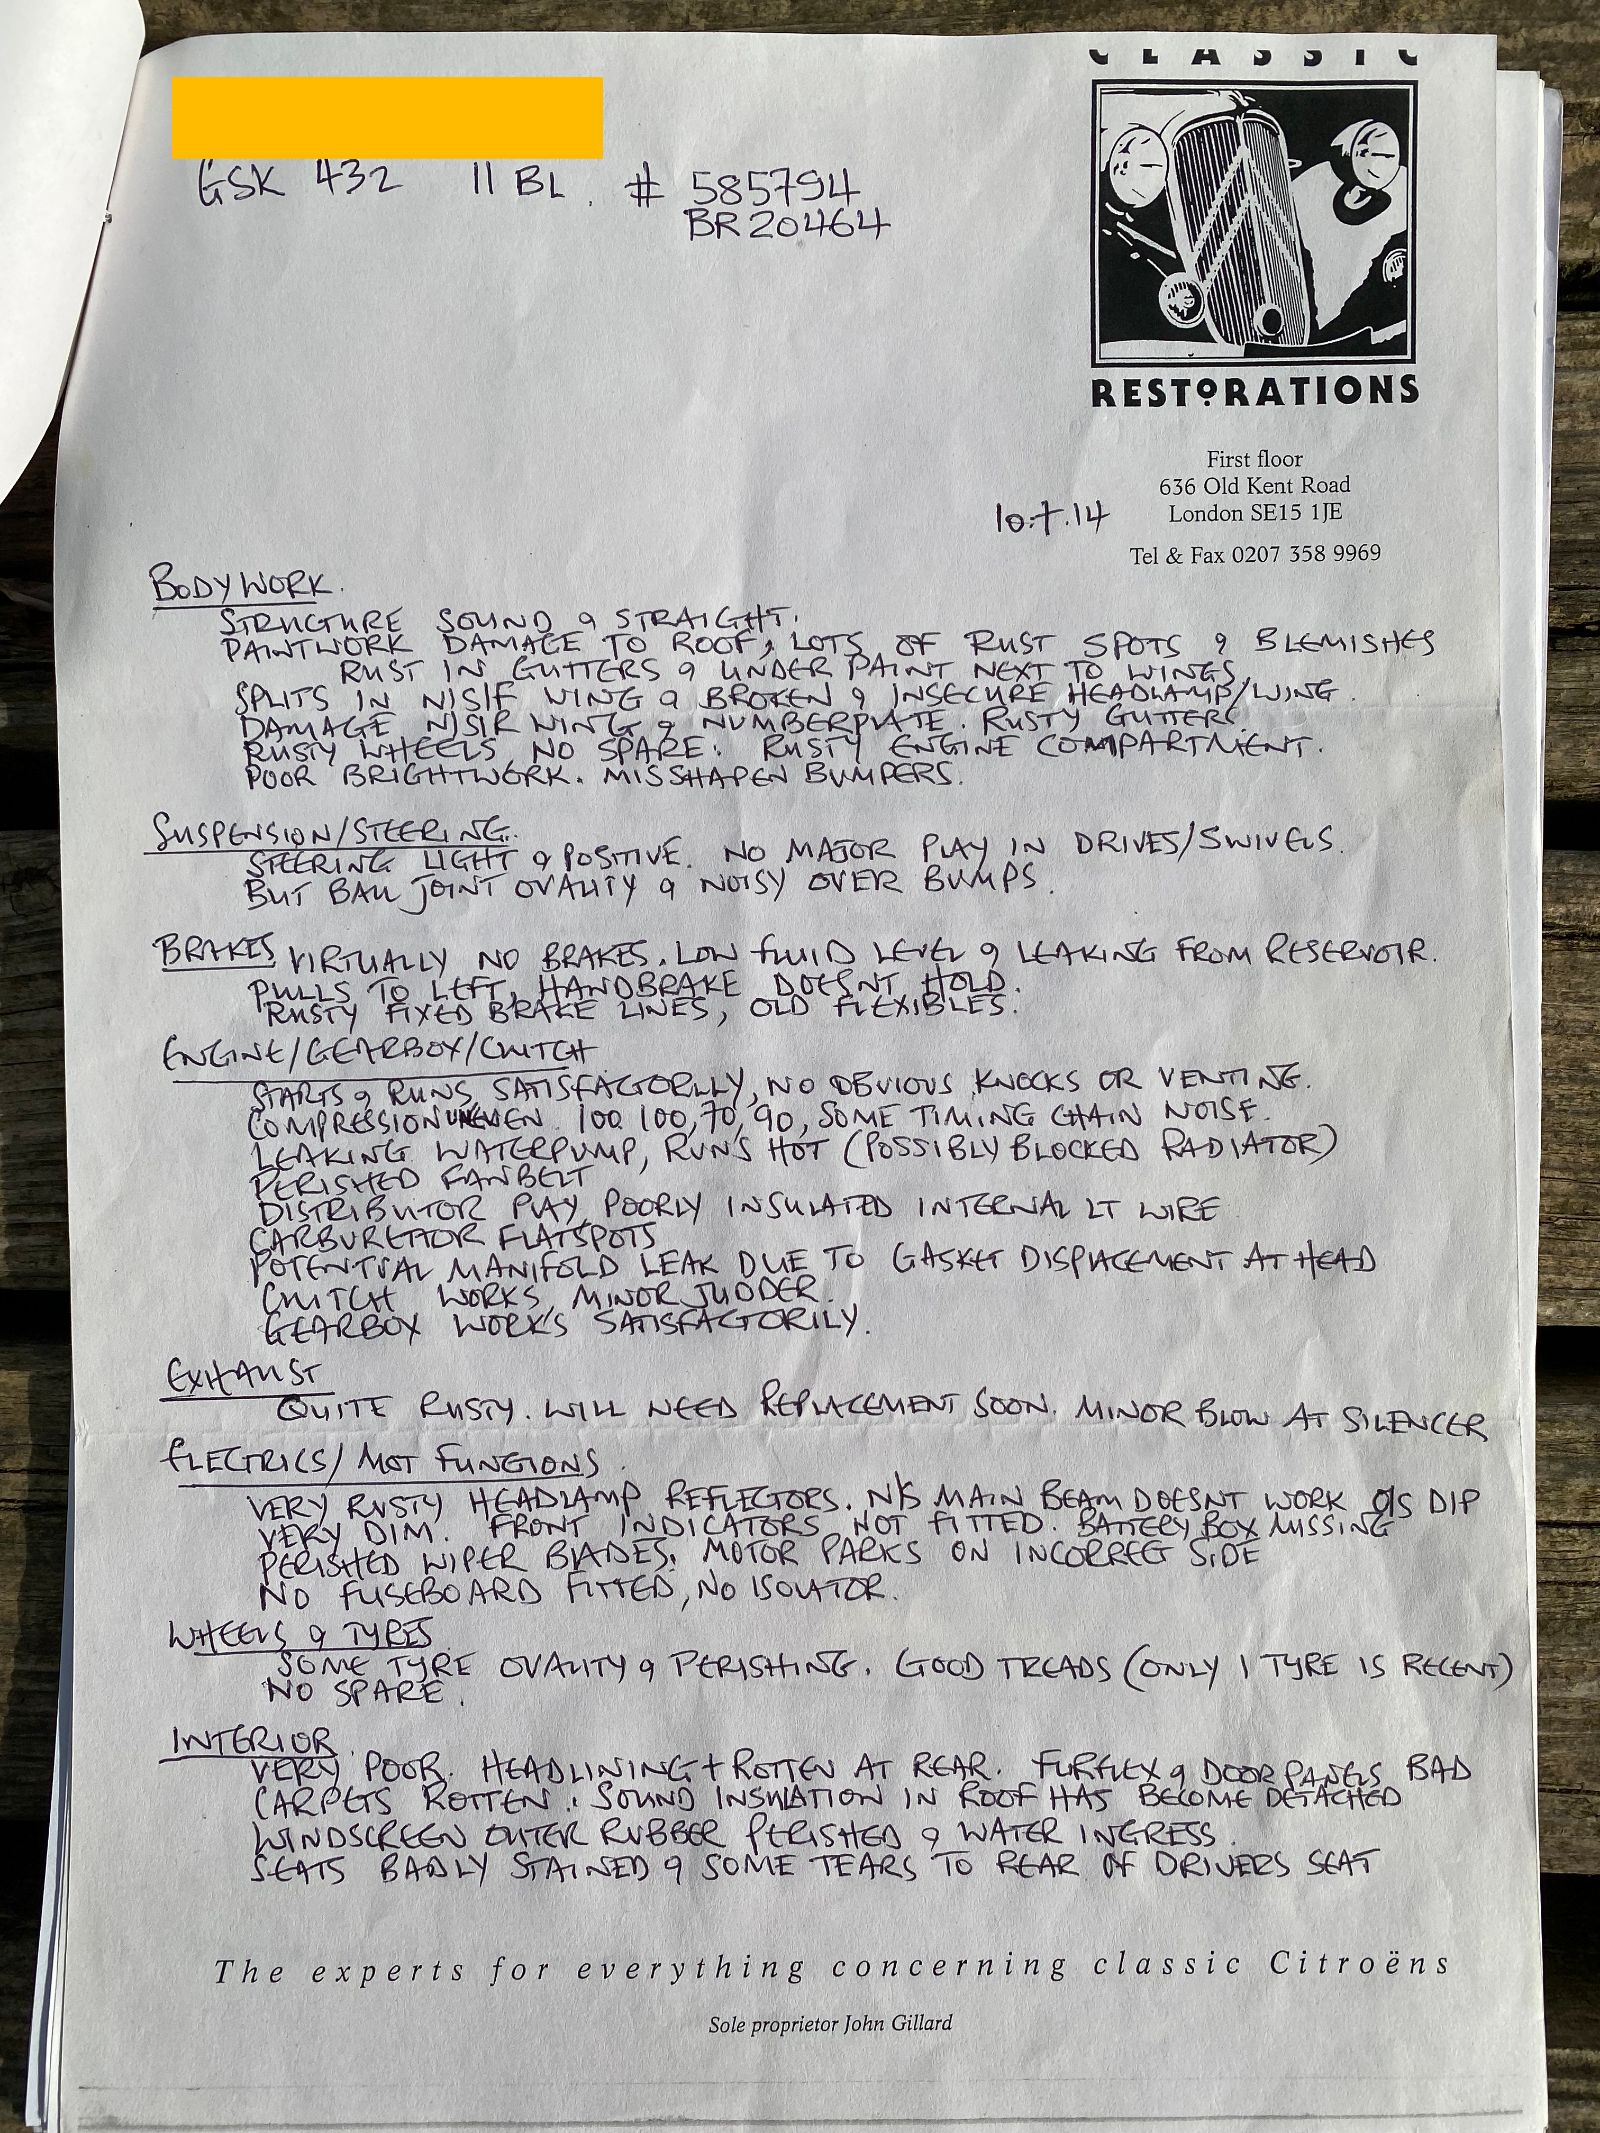 CLASSIC
GSK 432 11 BL. # 585794
BR20464
RESTORATIONS
First floor
636 Old Kent Road
London SE15 1JE
10.7.14
Tel & Fax 0207 358 9969
BODYWORK.
STRUCTURE SOUND & STRAIGHT.
PAINTWORK DAMAGE TO ROOF, LOTS OF RUST SPOTS & BLEMISHES
RUST IN GUTTERS & UNDER PAINT NEXT TO WINGS
SPLITS IN N/S/F WING & BROKEN & INSECURE HEADLAMP/WING.
DAMAGE N/S/R WING & NUMBERPLATE. RUSTY GUTTERS
RUSTY WHEELS NO SPARE. RUSTY ENGINE COMPARTMENT.
POOR BRIGHTWORK. MISSHAPEN BUMPERS.
SUSPENSION/STEERING.
STEERING LIGHT & POSITIVE. NO MAJOR PLAY IN DRIVES/SWIVELS.
BUT BALL JOINT OVALITY & NOISY OVER BUMPS.
BRAKES VIRTUALLY NO BRAKES. LOW FLUID LEVEL & LEAKING FROM RESERVOIR.
PULLS TO LEFT, HANDBRAKE DOESNT HOLD.
RUSTY FIXED BRAKE LINES, OLD FLEXIBLES.
ENGINE/GEARBOX/CLUTCH
STARTS & RUNS SATISFACTORLLY, NO OBVIOUS KNOCKS OR VENTING.
COMPRESSION UNEVEN. 100 100, 70, 90, SOME TIMING CHAIN NOISE.
LEAKING WATERPUMP, RUNS HOT (POSSIBLY BLOCKED RADIATOR)
PERISHED FANBELT
DISTRIBUTOR PLAY, POORLY INSULATED INTERNAL LT WIRE
CARBURETTOR FLATSPOTS
POTENTIAL MANIFOLD LEAK DUE TO GASKET DISPLACEMENT AT HEAD
CLUTCH WORKS, MINOR JUDDER.
GEARBOX WORKS SATISFACTORILY.
EXHAUST
QUITE RUSTY. WILL NEED REPLACEMENT SOON. MINOR BLOW AT SILENCER
ELECTRICS/MOT FUNCTIONS.
VERY RUSTY HEADLAMP REFLECTORS. N/S MAIN BEAM DOESNT WORK O/S DIP
VERY DIM. FRONT INDICATORS NOT FITTED. BATTERY BOX MISSING
PERISHED WIPER BLADES. MOTOR PARKS ON INCORRECT SIDE
NO FUSEBOARD FITTED, NO ISOLATOR.
WHEELS & TYRES
SOME TYRE OVALITY & PERISHING. GOOD TREADS (ONLY 1 TYRE IS RECENT)
NO SPARE.
INTERIOR
VERY POOR. HEADLINING + ROTTEN AT REAR. FURFLEX & DOOR PANELS BAD
CARPETS ROTTEN. SOUND INSULATION IN ROOF HAS BECOME DETACHED
WINDSCREEN OUTER RUBBER PERISHED & WATER INGRESS.
SEATS BADLY STAINED & SOME TEARS TO REAR OF DRIVERS SEAT
The experts for everything concerning classic Citroëns
Sole proprietor John Gillard